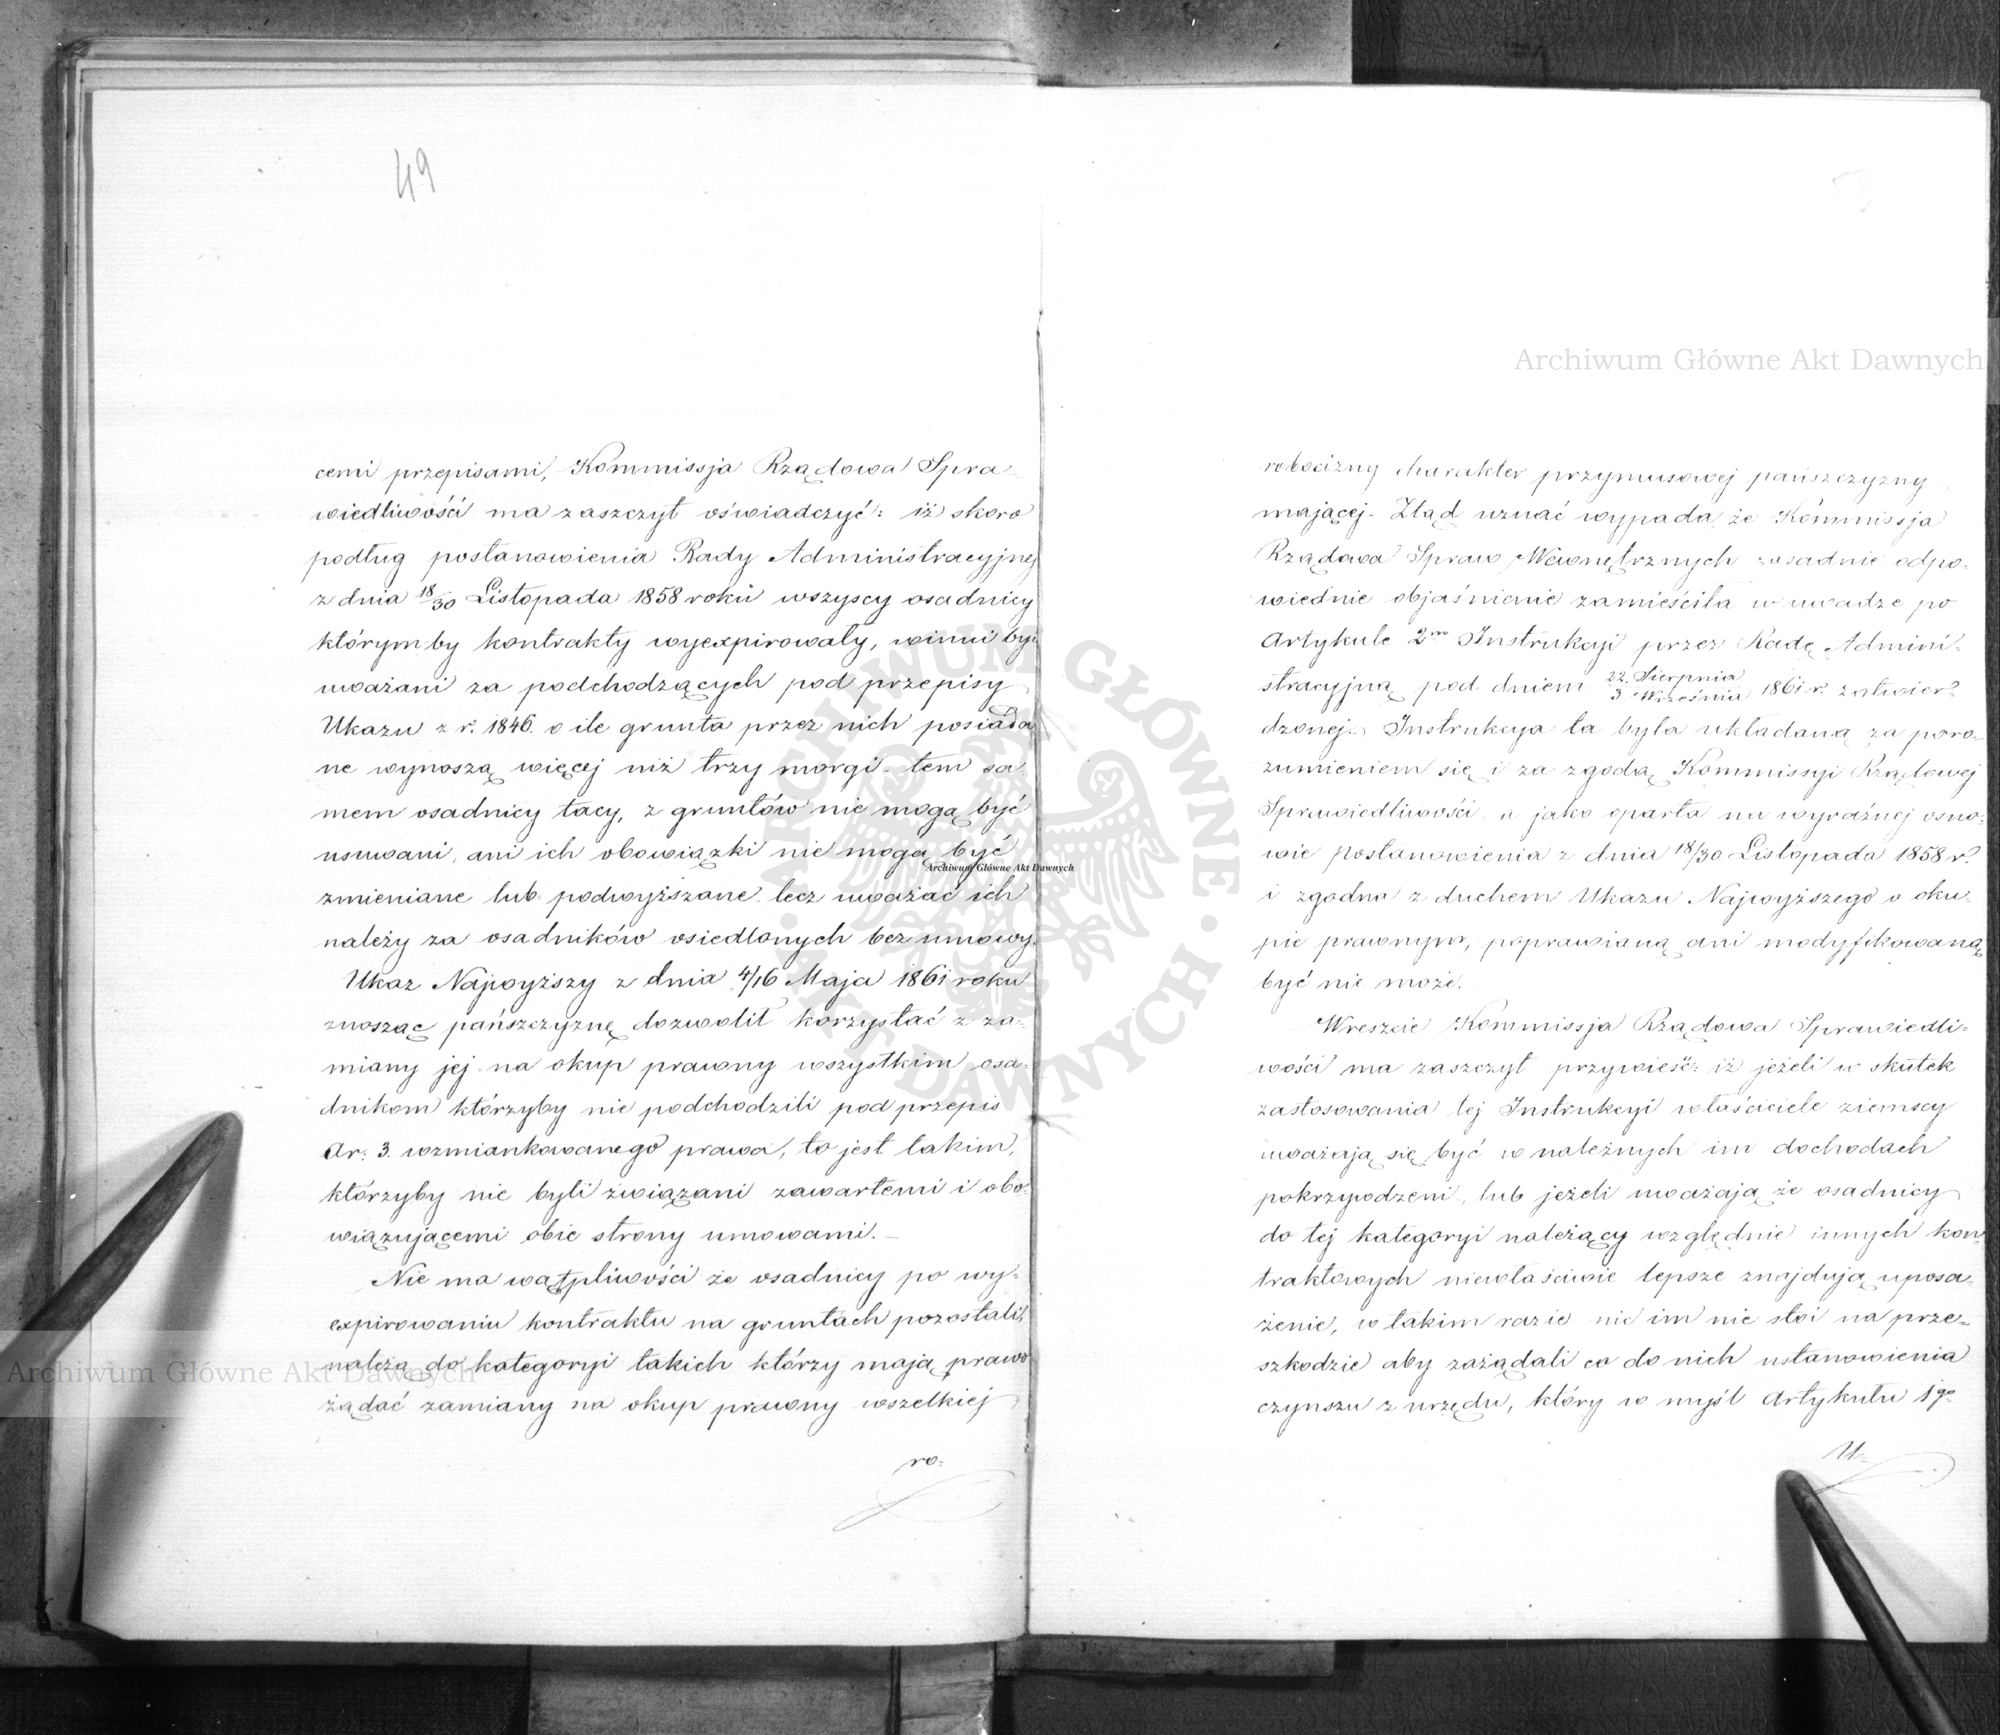 49
cemi przepisami, Kommissja Rządowa Spra-
wiedliwości ma zaszczyt oświadczyć: iż skoro
podług postanowienia Rady Administracyjnej
z dnia 18/30 Listopada 1858 roku wszyscy osadnicy
którymby kontrakty wyexpirowały, winni być
uważani za podchodzących pod przepisy
Ukazu z r. 1846. o ile grunta przez nich posiada
ne wynoszą więcej niż trzy morgi - tem sa-
mem osadnicy tacy, z gruntów nie mogą być
usuwani, ani ich obowiązki nie mogą być
zmieniane lub podwyższane lecz uważać ich
należy za osadników osiedlonych bez umowy.
Ukaz Najwyższy z dnia 4/16 Maja 1861 roku
znosząc pańszczyznę dozwolił korzystać z za-
miany jej na okup prawny wszystkim osa-
dnikom którzyby nie podchodzili pod przepis
Ar: 3. wzmiankowanego prawa, to jest takim,
którzyby nie byli związani zawartemi i obo-
wiązującemi obie strony umowami. -
Nie ma wątpliwości że osadnicy po wy-
expirowaniu kontraktu na gruntach pozostali,
należą do kategoryi takich którzy mają prawo
żądać zamiany na okup prawny wszelkiej
ro-
robocizny charakter przymusowej pańszczyzny
mającej. Ztąd uznać wypada, że Kommissja
Rządowa Spraw Wewnętrznych zasadnie odpo-
wiednie objaśnienie zamieściła w uwadze po
Artykule 2m Instrukcyi przez Radę Admini-
stracyjną pod dniem 22. Sierpnia / 3 Września 1861 r. zatwier-
dzonej. Instrukcya ta była układaną za poro-
zumieniem się i za zgodą Kommissyi Rządowej
Sprawiedliwości a jako oparta na wyraźnej osno-
wie postanowienia z dnia 18/30 Listopada 1858 r.
i zgodna z duchem Ukazu Najwyższego o oku-
pie prawnym, poprawianą ani modyfikowaną
być nie może.
Wreszcie Kommissja Rządowa Sprawiedli-
wości ma zaszczyt przywieść: iż jeżeli w skutek
zastosowania tej Instrukcyi właściciele ziemscy
uważają się być w należnych im dochodach
pokrzywdzeni, lub jeżeli uważają że osadnicy
do tej kategoryi należący względnie innych kon-
traktowych niewłaściwie lepsze znajdują uposa-
żenie, w takim razie nic im nie stoi na prze-
szkodzie aby zażądali co do nich ustanowienia
czynszu z urzędu, który w myśl Artykułu 1go
U-
Archiwum Główne Akt Dawnych
Archiwum Główne Akt Dawnych
Archiwum Główne Akt Dawnych
ARCHIWUM GŁÓWNE · AKT DAWNYCH ·